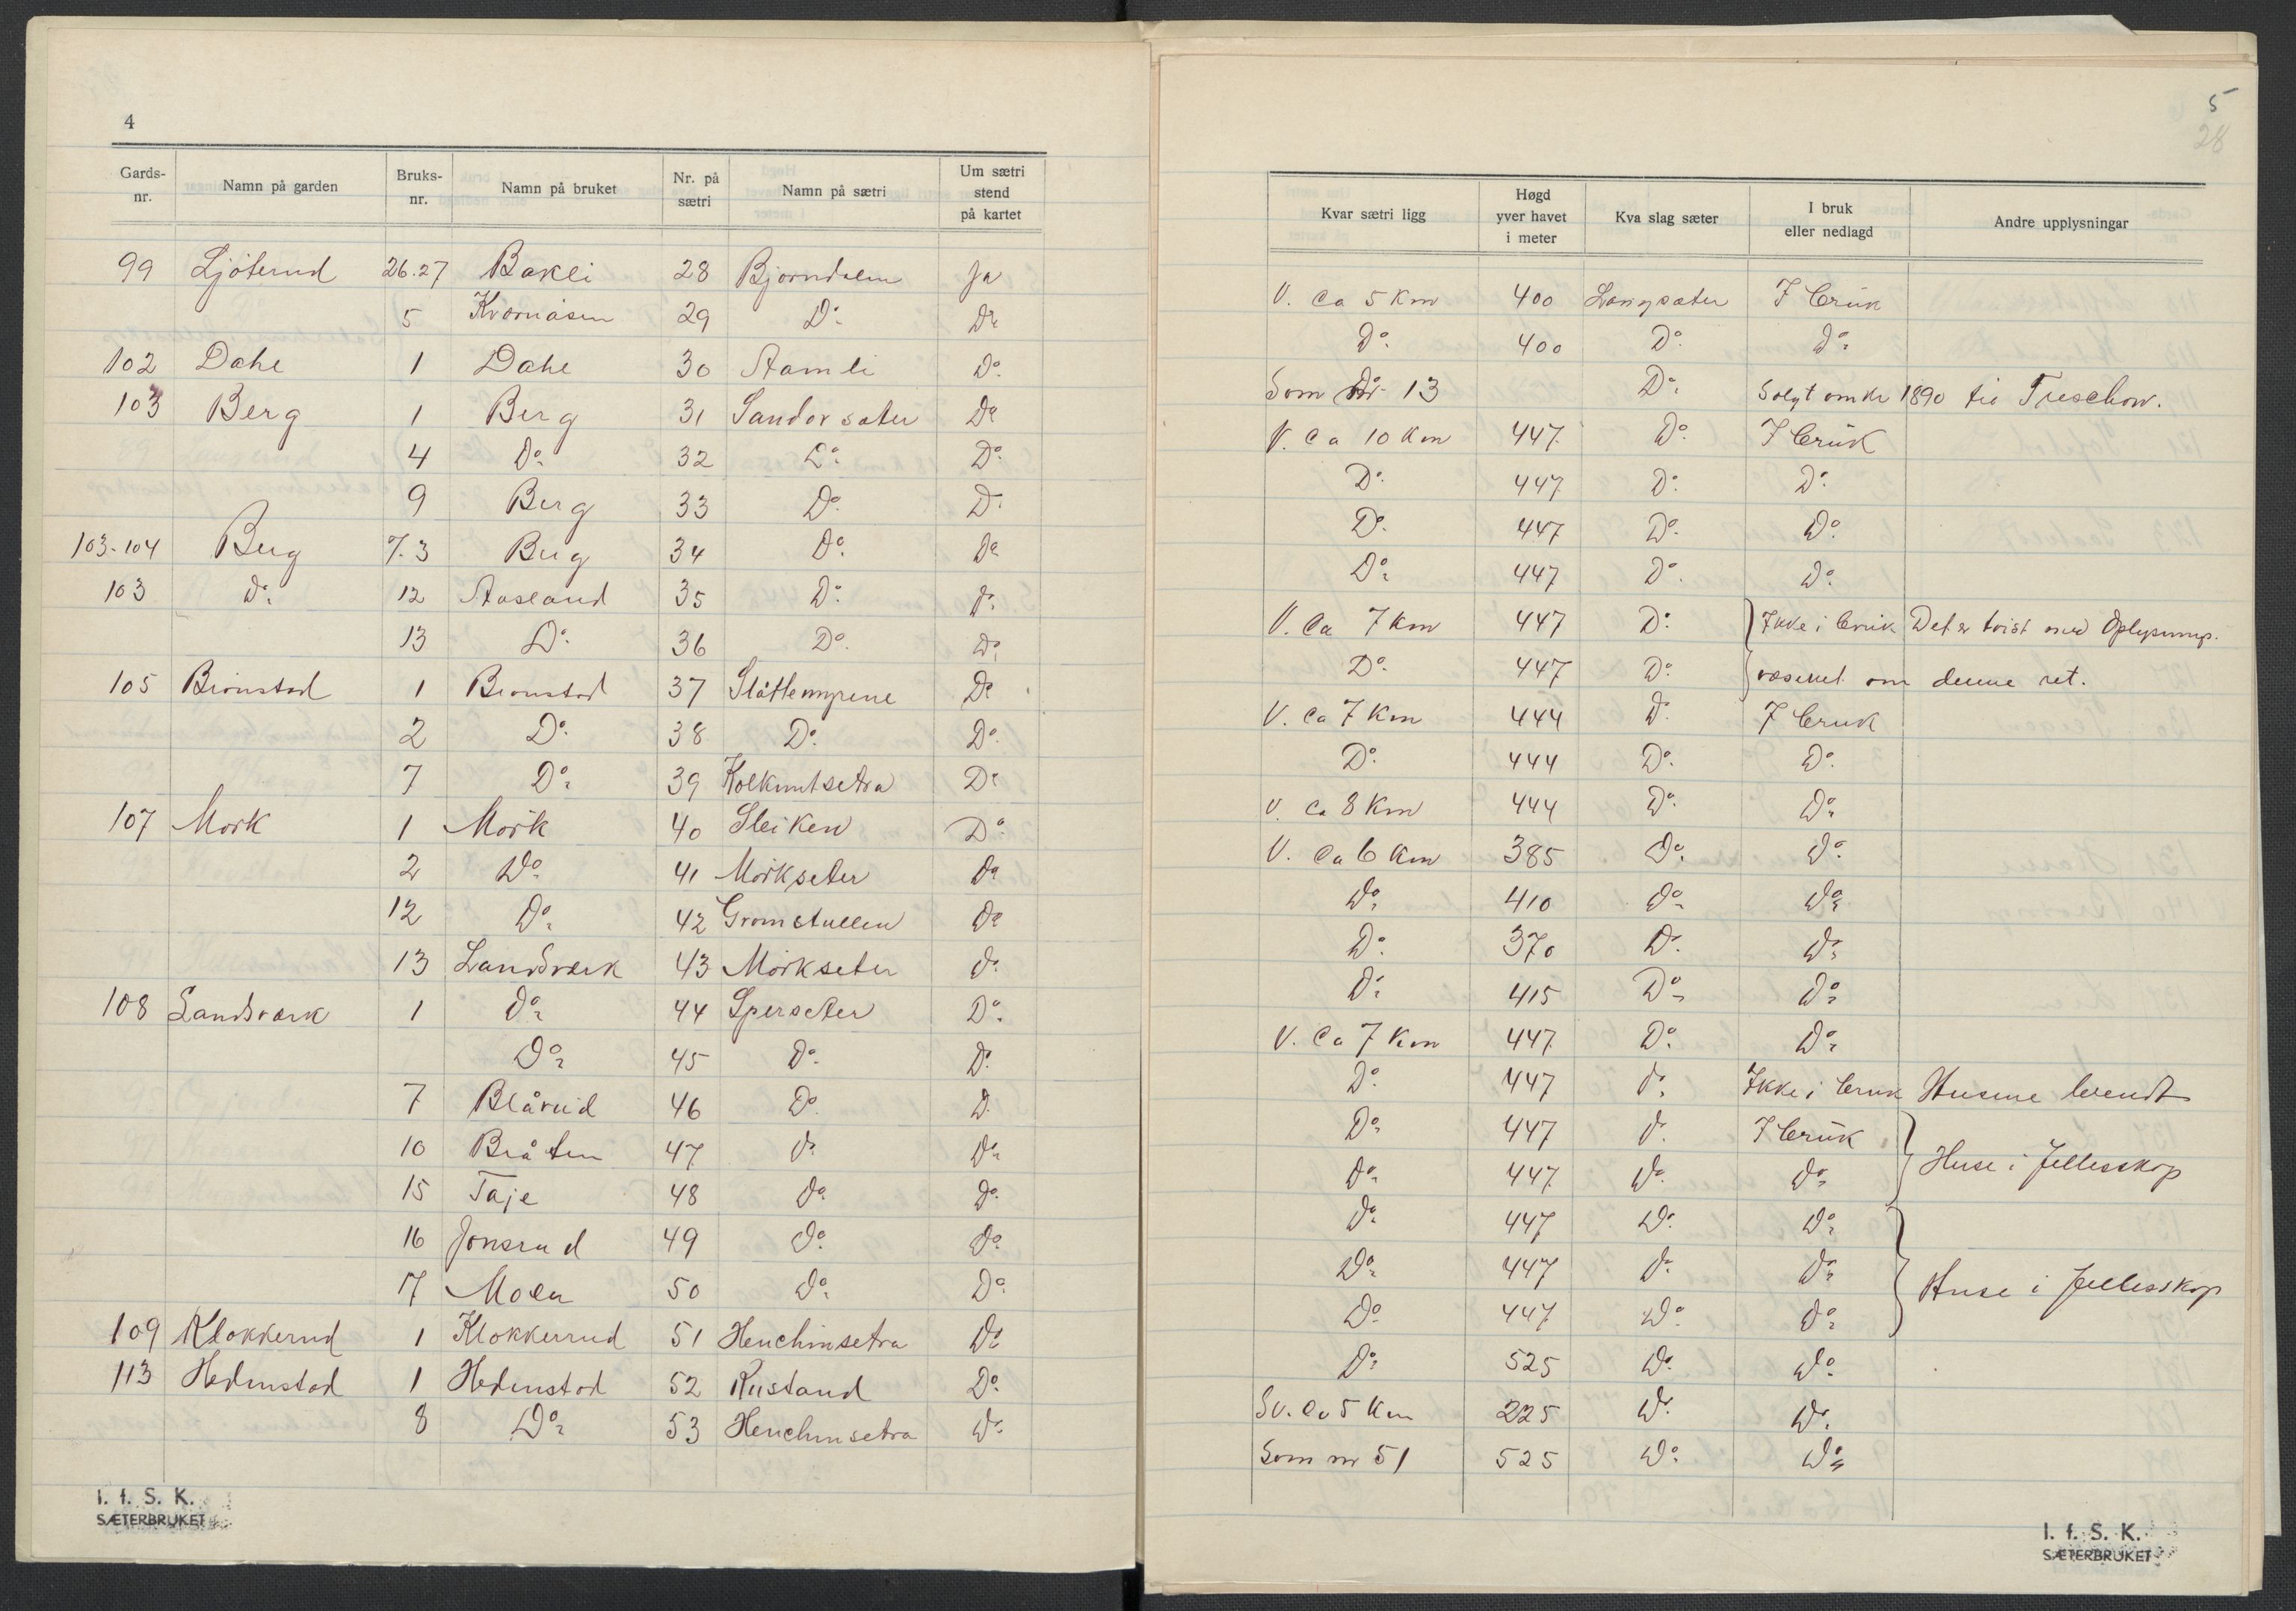 4
Gards-nr. Namn på garden Bruks-nr. Namn på bruket Nr. på sætri Namn på sætri Um sætri stend på kartet
99 Ljöterud 26.27 Bakli 28 Bjørndalen Ja
5 Kvernåsen 29 Do Do
102 Dahl 1 Dahl 30 Stamli Do
103 Berg 1 Berg 31 Sandorsæter Do
4 Do 32 Do Do
9 Berg 33 Do Do
103-104 Berg 7.3 Berg 34 Do Do
103 Do 12 Aasland 35 Do Do
13 Do 36 Do Do
105 Brönstad 1 Brönstad 37 Slåttemyrene Do
2 Do 38 Do Do
7 Do 39 Kolknutsetra Do
107 Mörk 1 Mörk 40 Steiken Do
2 Do 41 Mörkseter Do
12 Do 42 Gromstullen Do
13 Landsværk 43 Mörkseter Do
108 Landsværk 1 Do 44 Sperseter Do
Do 45 Do Do
7 Blårud 46 Do Do
10 Bråten 47 Do Do
15 Taje 48 Do Do
16 Jonsrud 49 Do Do
17 Moen 50 Do Do
109 Klokkerud 1 Klokkerrud 51 Henchinsetra Do
113 Hedenstad 1 Hedenstad 52 Rustand Do
8 Do 53 Henchinsetra Do
I. f. S. K.
SÆTERBRUKET
5
28
Kvar sætri ligg Høgd yver havet i meter Kva slag sæter I bruk eller nedlagd Andre upplysningar
V. ca 5 Km 400 Langsæter I bruk
Do 400 Do Do
Som Nr 13 Do Solgt omkr 1890 til Treschow.
V. Ca 10 Km 447 Do I bruk
Do 447 Do Do
Do 447 Do Do
Do 447 Do Do
V. Ca 7 Km 447 Do Ikke i bruk Det er tvist med Oplysnings-
Do 447 Do væsenet om denne ret.
V. Ca 7 Km 444 Do I bruk
Do 444 Do Do
V. Ca 8 Km 444 Do Do
V. Ca 6 Km 385 Do Do
Do 410 Do Do
Do 370 Do Do
Do 415 Do Do
V. Ca 7 Km 447 Do Do
Do 447 Do Ikke i bruk Husene brendt
Do 447 Do I bruk
Do 447 Do Do Huse i fellesskap
Do 447 Do Do
Do 447 Do Do Huse i fellesskap
Do 447 Do Do
Do 525 Do Do
Sv. Ca 5 Km 225 Do Do
Som nr 51 525 Do Do
I. f. S. K.
SÆTERBRUKET